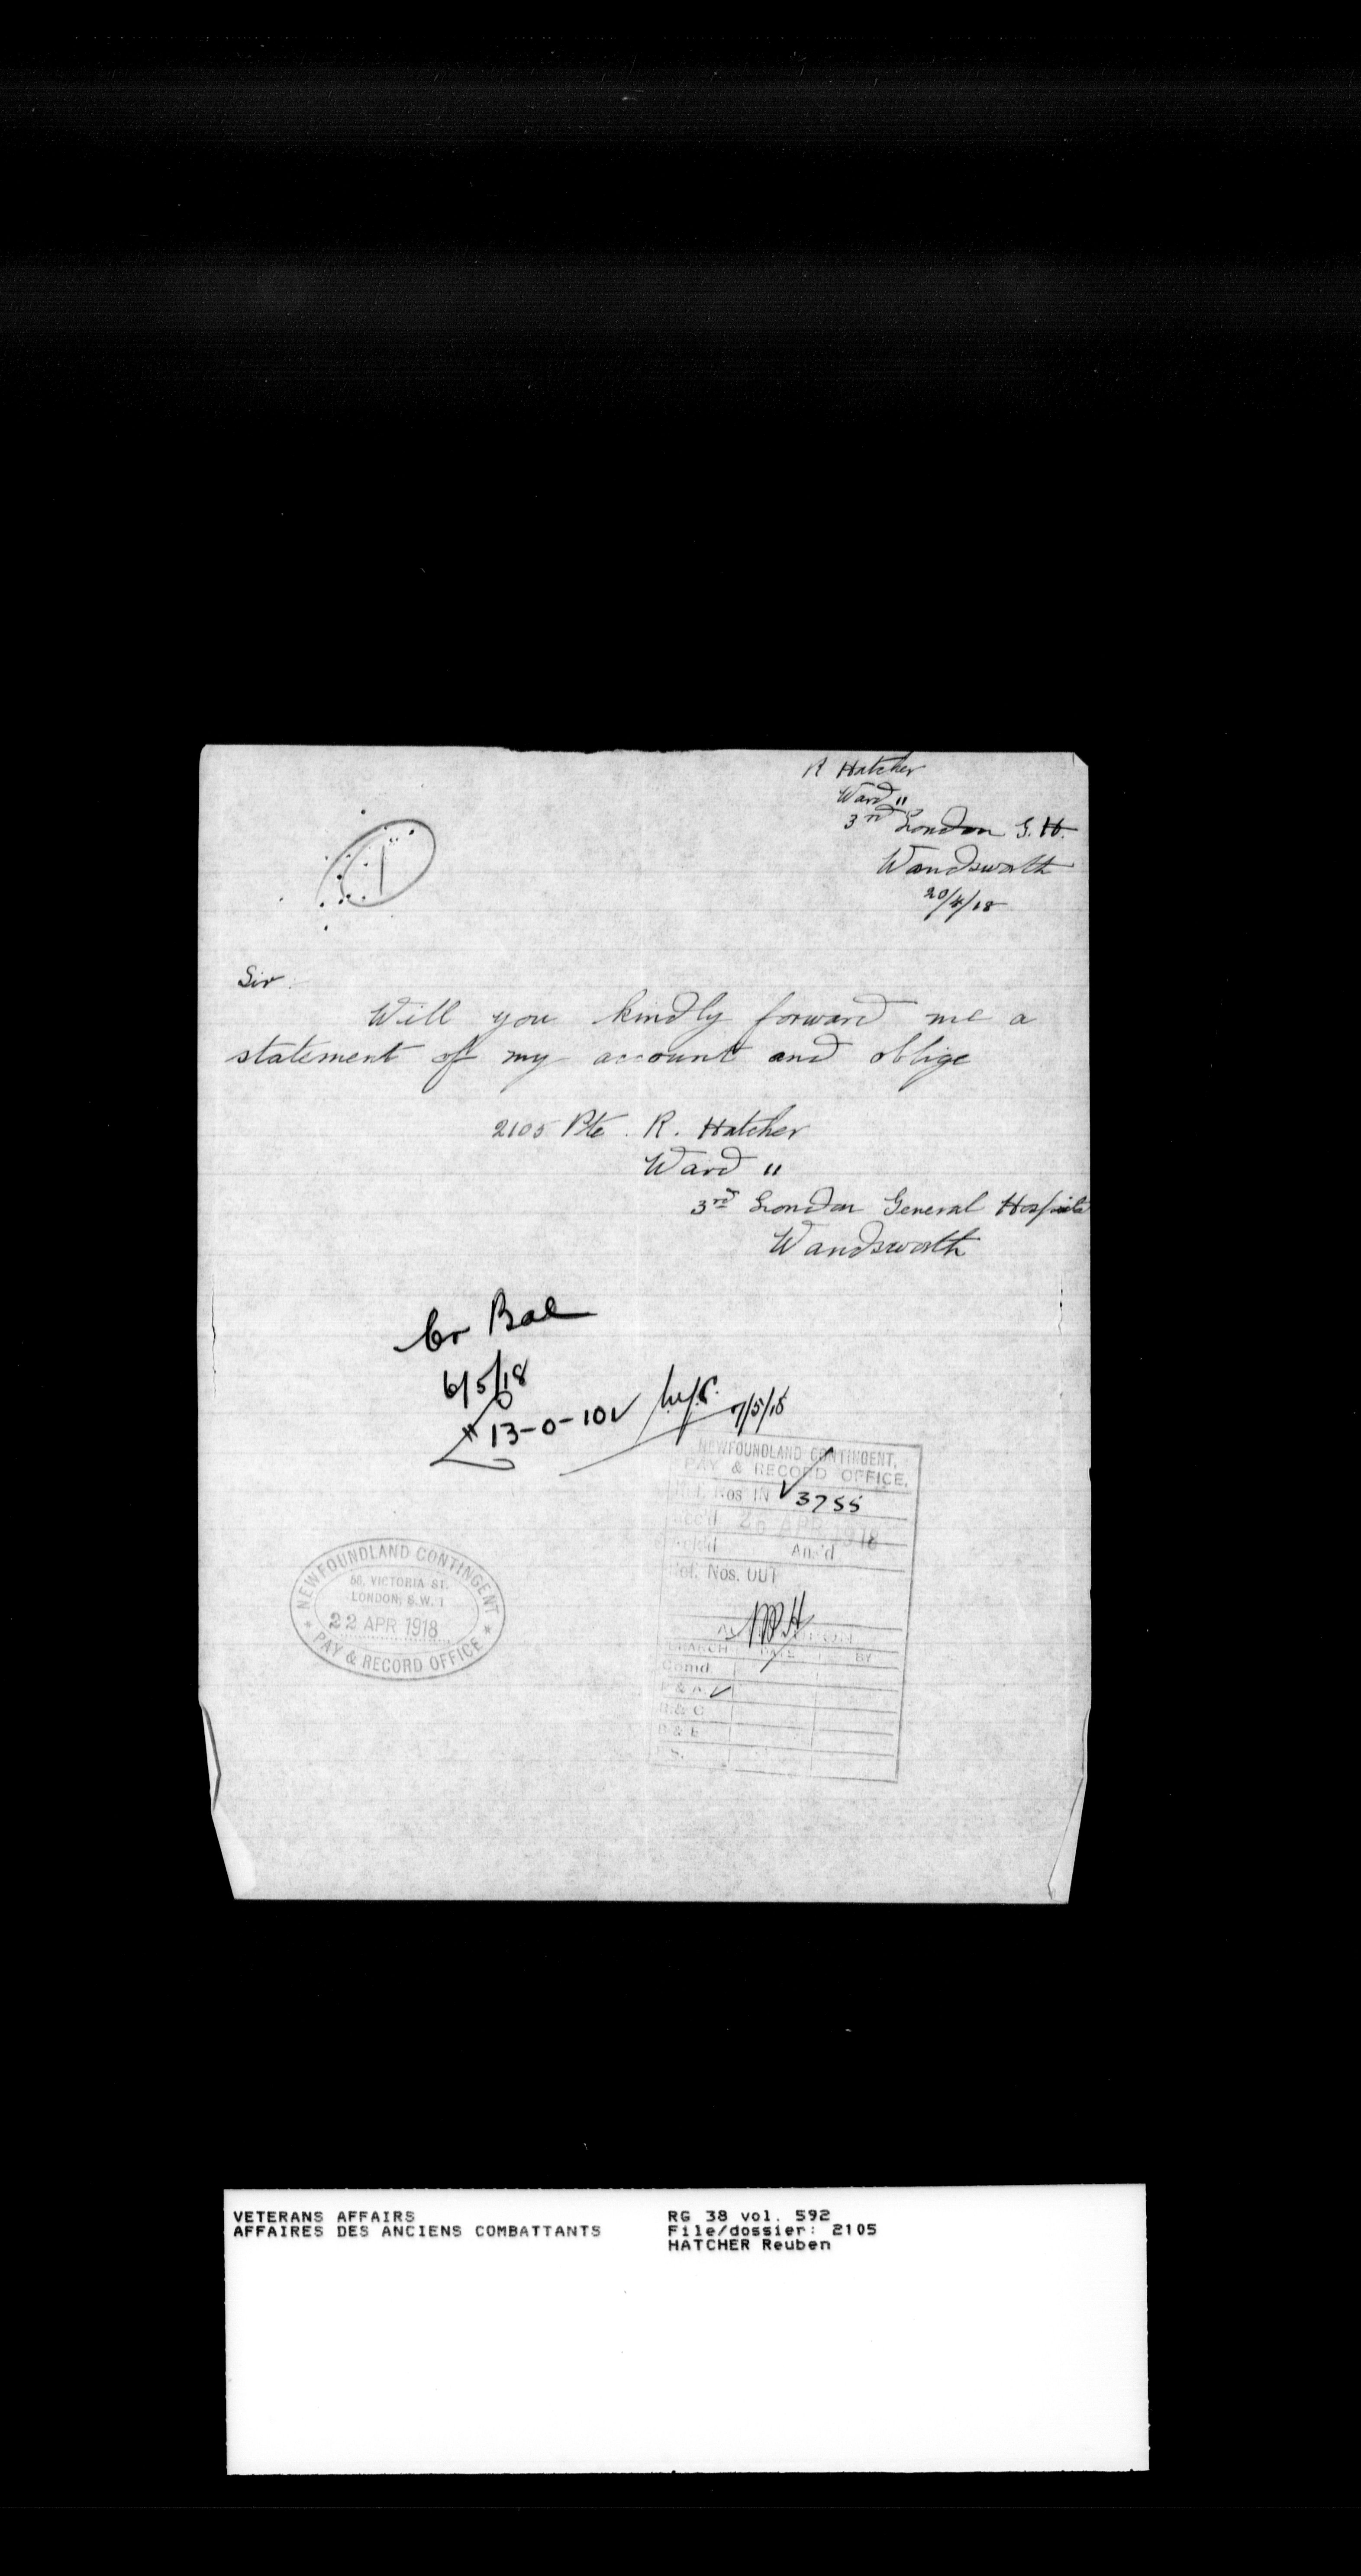 R Hatcher
Ward "
3rd London G. H.
Wandsworth
20/4/18
1
Sir.
Will you kindly forward me a
statement of my account and oblige
2105 Pte. R. Hatcher
Ward "
3rd London General Hospital
Wandsworth
Cr Bal
6/5/18
£ 13-0-10
7/5/18
NEWFOUNDLAND CONTINGENT,
PAY & RECORD OFFICE.
Ref. Nos IN 3755
Rec'd 26 APR 1918
Ack'd Ans'd
Ref. Nos. OUT
BRANCH DATE BY
Comd.
P & A.
R & C
D & E
S.
NEWFOUNDLAND CONTINGENT
58, VICTORIA ST.
LONDON, S.W. 1
22 APR 1918
PAY & RECORD OFFICE
VETERANS AFFAIRS
AFFAIRES DES ANCIENS COMBATTANTS
RG 38 vol. 592
File/dossier: 2105
HATCHER Reuben